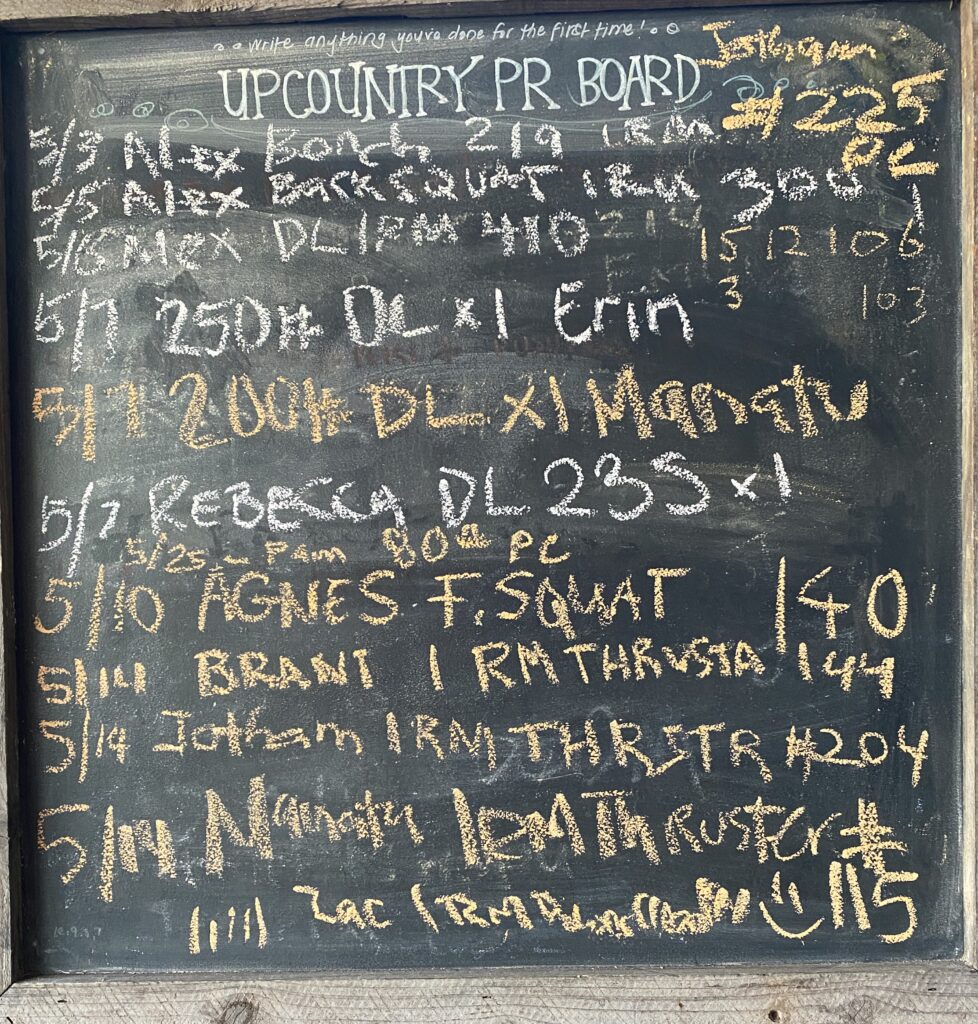 write anything you've done for the first time!
UPCOUNTRY PR BOARD
#225
PC
5/3 Alex Bench 219 1RM
5/5 Alex BACKSQUAT 1RM 300
5/6 Alex DL 1RM 410 214
15 12 10 6
3 103
5/7 250# DL x1 Erin
5/7 200# DL x1 Mamatu
5/7 REBECCA DL 235 x1
5/25 - Pam 80# PC
5/10 AGNES F. SQUAT 140
5/14 BRANT 1 RM THRUSTA 144
5/14 Jotham 1RM THRSTR #204
5/14 Mamatu 1RM ThRUSTER #
115
Zac 1RM